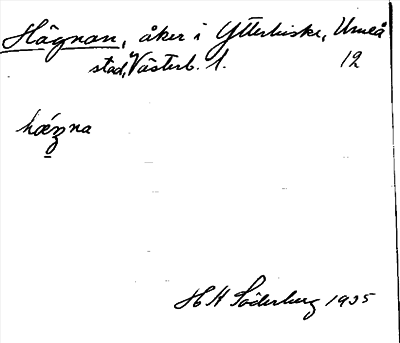 Hägnan, åker i Ytterhiske, Umeå
stad, Västerb. l. 12
hǽgna
H H Söderberg 1935